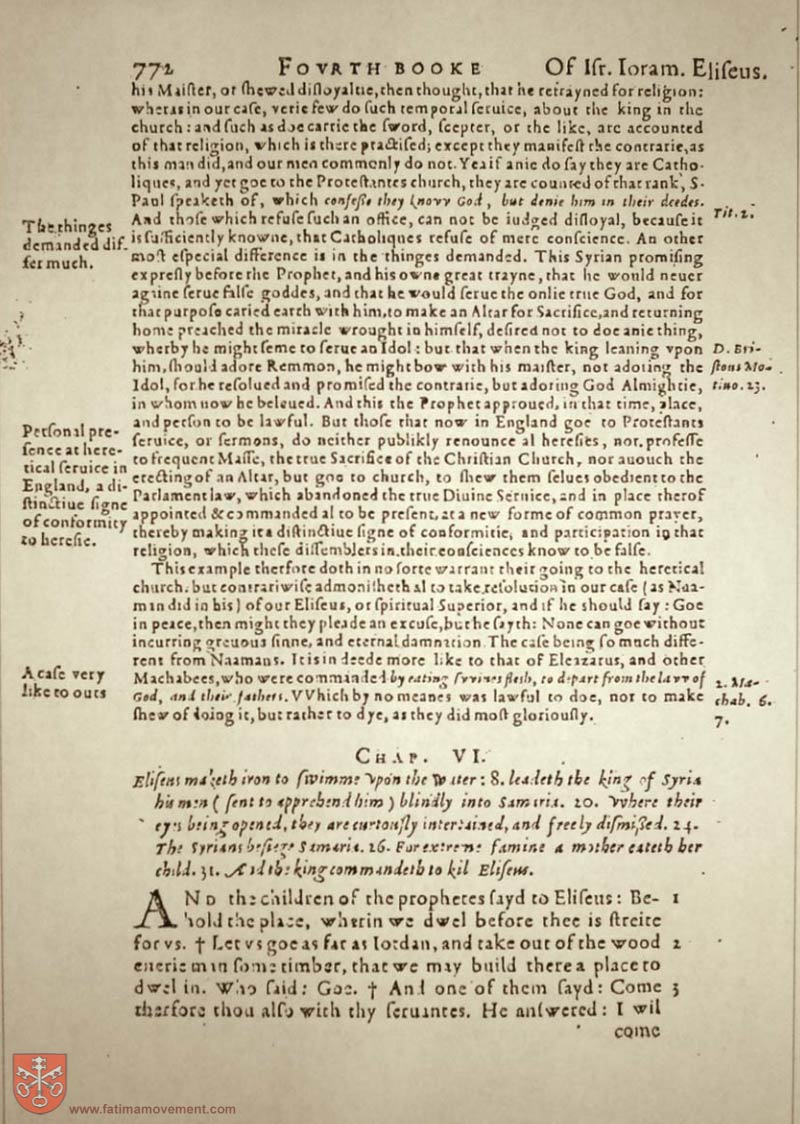 772 FOVRTH BOOKE Of Iſr. Ioram. Eliſeus.
his Maiſter, or ſhewed diſloyaltie, then thought, that he refrayned for religion:
wheras in our caſe, verie few do ſuch temporal ſeruice, about the king in the
church: and ſuch as doe carrie the ſword, ſcepter, or the like, are accounted
of that religion, which is there practiſed; except they manifeſt the contrarie, as
this man did, and our men commonly do not. Yea if anie do ſay they are Catho-
liques, and yet goe to the Proteſtantes church, they are counted of that rank, S.
Paul ſpeaketh of, which confeſſe they knovv God, but denie him in their deedes.
And thoſe which refuſe ſuch an office, can not be iudged diſloyal, becauſe it
is ſufficiently knowne, that Catholiques refuſe of mere conſcience. An other
moſt eſpecial difference is in the thinges demanded. This Syrian promiſing
expreſly before the Prophet, and his owne great trayne, that he would neuer
againe ſerue falſe goddes, and that he would ſerue the onlie true God, and for
that purpoſe caried earth with him, to make an Altar for Sacrifice, and returning
home preached the miracle wrought in himſelf, deſired not to doe anie thing,
wherby he might ſeme to ſerue an Idol: but that when the king leaning vpon
him, ſhould adore Remmon, he might bow with his maiſter, not adoring the
Idol, for he reſolued and promiſed the contrarie, but adoring God Almightie,
in whom now he beleued. And this the Prophet approued, in that time, place,
and perſon to be lawful. But thoſe that now in England goe to Proteſtants
ſeruice, or ſermons, do neither publikly renounce al hereſies, nor profeſſe
to frequent Maſſe, the true Sacrifice of the Chriſtian Church, nor auouch the
erecting of an Altar, but goe to church, to ſhew them ſelues obedient to the
Parlament law, which abandoned the true Diuine Seruice, and in place therof
appointed & commanded al to be preſent, at a new forme of common prayer,
thereby making it a diſtinctiue ſigne of conformitie, and participation in that
religion, which theſe diſſemblers in their conſciences know to be falſe.
This example therfore doth in no ſorte warrant their going to the heretical
church. but contrariwiſe admoniſheth al to take reſolution in our caſe (as Naa-
man did in his) of our Eliſeus, or ſpiritual Superior, and if he should ſay: Goe
in peace, then might they pleade an excuſe, but he ſayth: None can goe without
incurring greuous ſinne, and eternal damnation. The caſe being ſo much diffe-
rent from Naamans. It is in deede more like to that of Eleazarus, and other
Machabees, who were commanded by eating ſvvines fleſh, to depart from the lavv of
God, and their fathers. VVhich by no meanes was lawful to doe, nor to make
ſhew of doing it, but rather to dye, as they did moſt gloriouſly.
The thinges
demanded dif-
fer much.
Perſonal pre-
ſence at here-
tical ſeruice in
England, a di-
ſtinctiue ſigne
of conformity
to hereſie.
A caſe very
like to ours
Tit. 1.
D. Bri-
ſtous Mo-
tiuo. 23.
2. Ma-
chab. 6.
7.
CHAP. VI.
Eliſeus maketh iron to ſwimme vpon the water: 8. leadeth the king of Syria
his men (ſent to apprehend him) blindly into Samaria. 20. Where their
eyes being opened, they are curtouſly intertained, and freely diſmiſſed. 24.
The Syrians beſiege Samaria. 26. For extreme famine a mother eateth her
child. 31. And the king commandeth to kil Eliſeus.
AND the children of the prophetes ſayd to Eliſeus: Be- 1
hold the place, wherin we dwel before thee is ſtreite
for vs. † Let vs goe as far as Iordan, and take out of the wood 2
euerie man ſome timber, that we may build there a place to
dwel in. Who ſaid: Goe. † And one of them ſayd: Come 3
therfore thou alſo with thy ſeruantes. He anſwered: I wil
come
www.fatimamovement.com